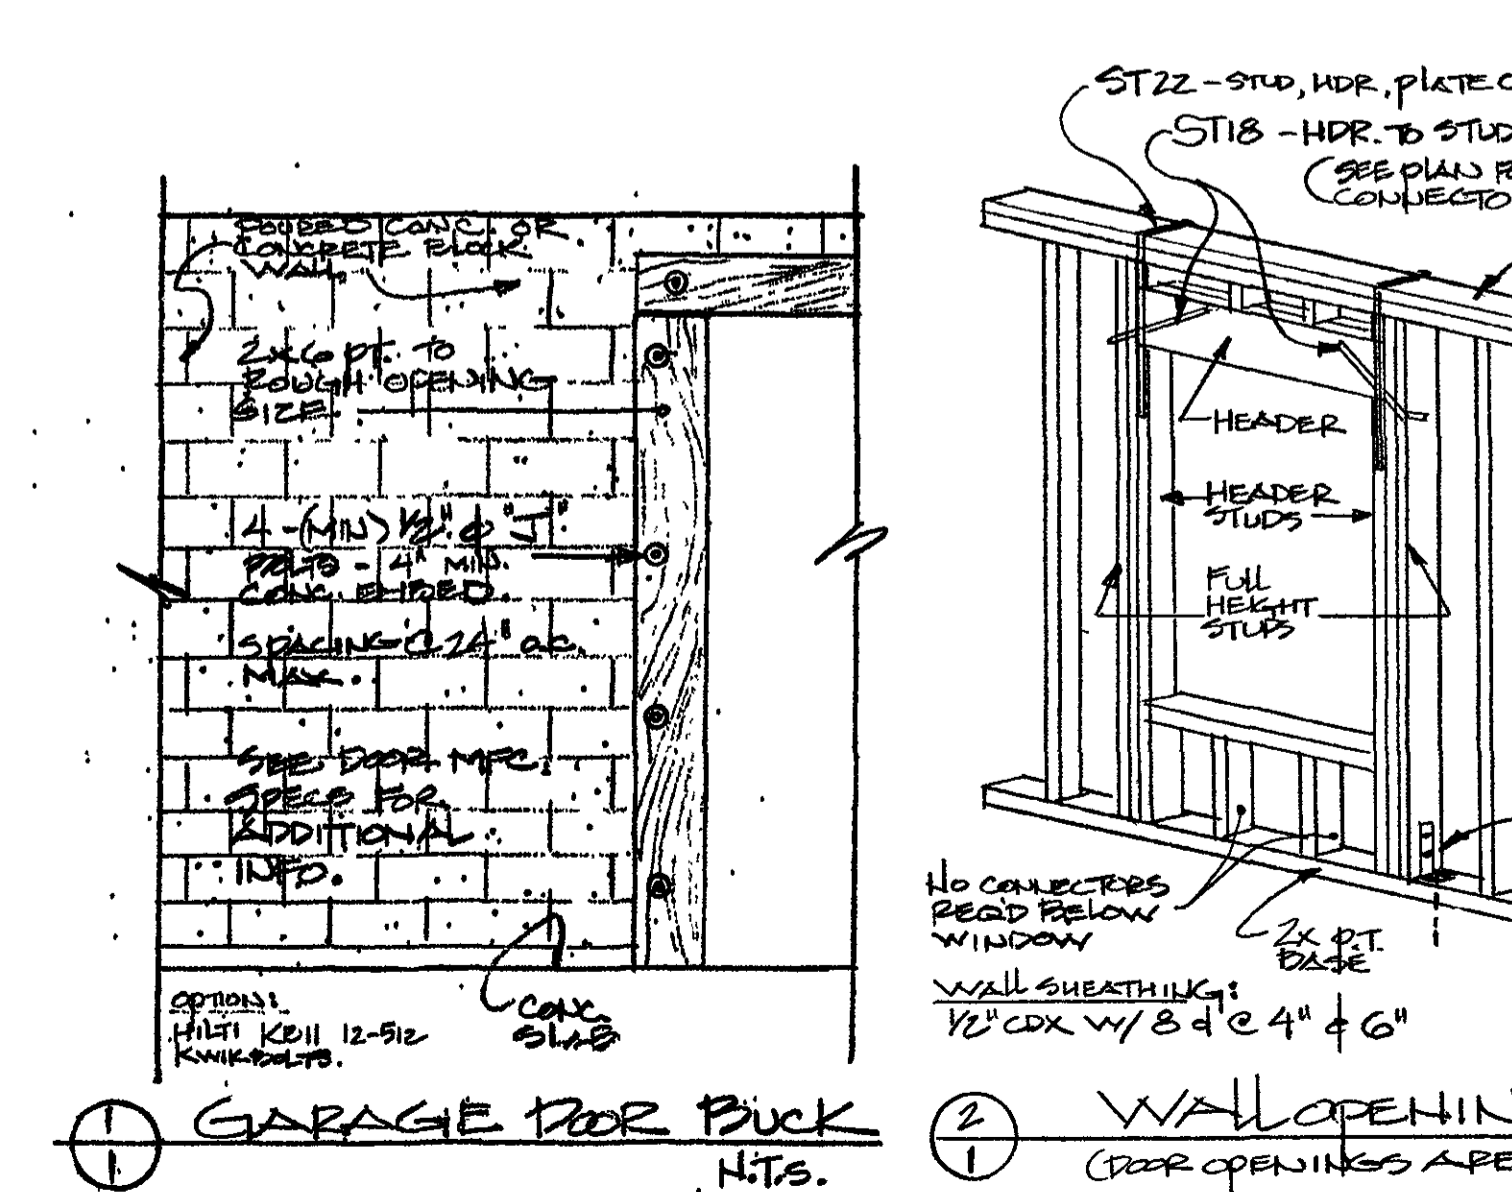 POURED CONC. OR
CONCRETE BLOCK
WALL.
2x6 pt. TO
ROUGH OPENING
SIZE
4-(MIN) 1/2" ⌀ "J"
BOLTS - 4" MIN.
CONC. EMBED.
SPACING @ 24" o.c.
MAX.
SEE DOOR MFG.
SPECS FOR
ADDITIONAL
INFO.
OPTION:
HILTI KBII 12-512
KWIK-BOLTS.
CONC.
SLAB
1
1
GARAGE DOOR BUCK
N.T.S.
ST22 - STUD, HDR, PLATE
ST18 - HDR. TO STUD
(SEE PLAN
HEADER
HEADER
STUDS
FULL
HEIGHT
STUDS
NO CONNECTORS
REQ'D BELOW
WINDOW
2x P.T.
BASE
WALL SHEATHING:
1/2" CDX W/ 8d @ 4" & 6"
2
1
WALL
(DOOR OPENINGS ARE